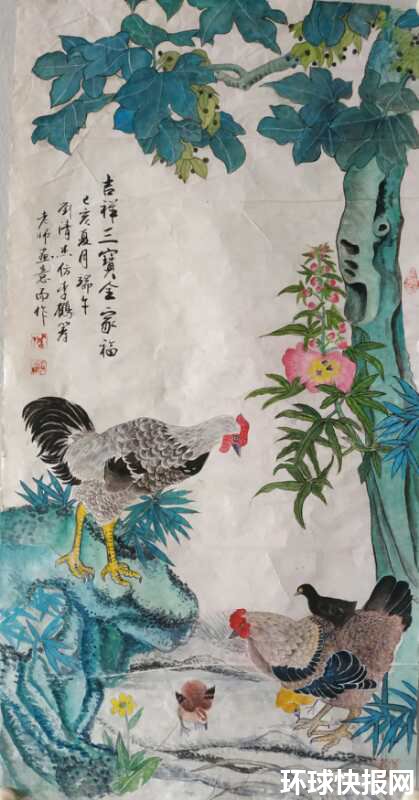 吉祥三寶全家福
己亥夏月端午
劉清杰仿李鶴筹
老师画意而作
环球快报网